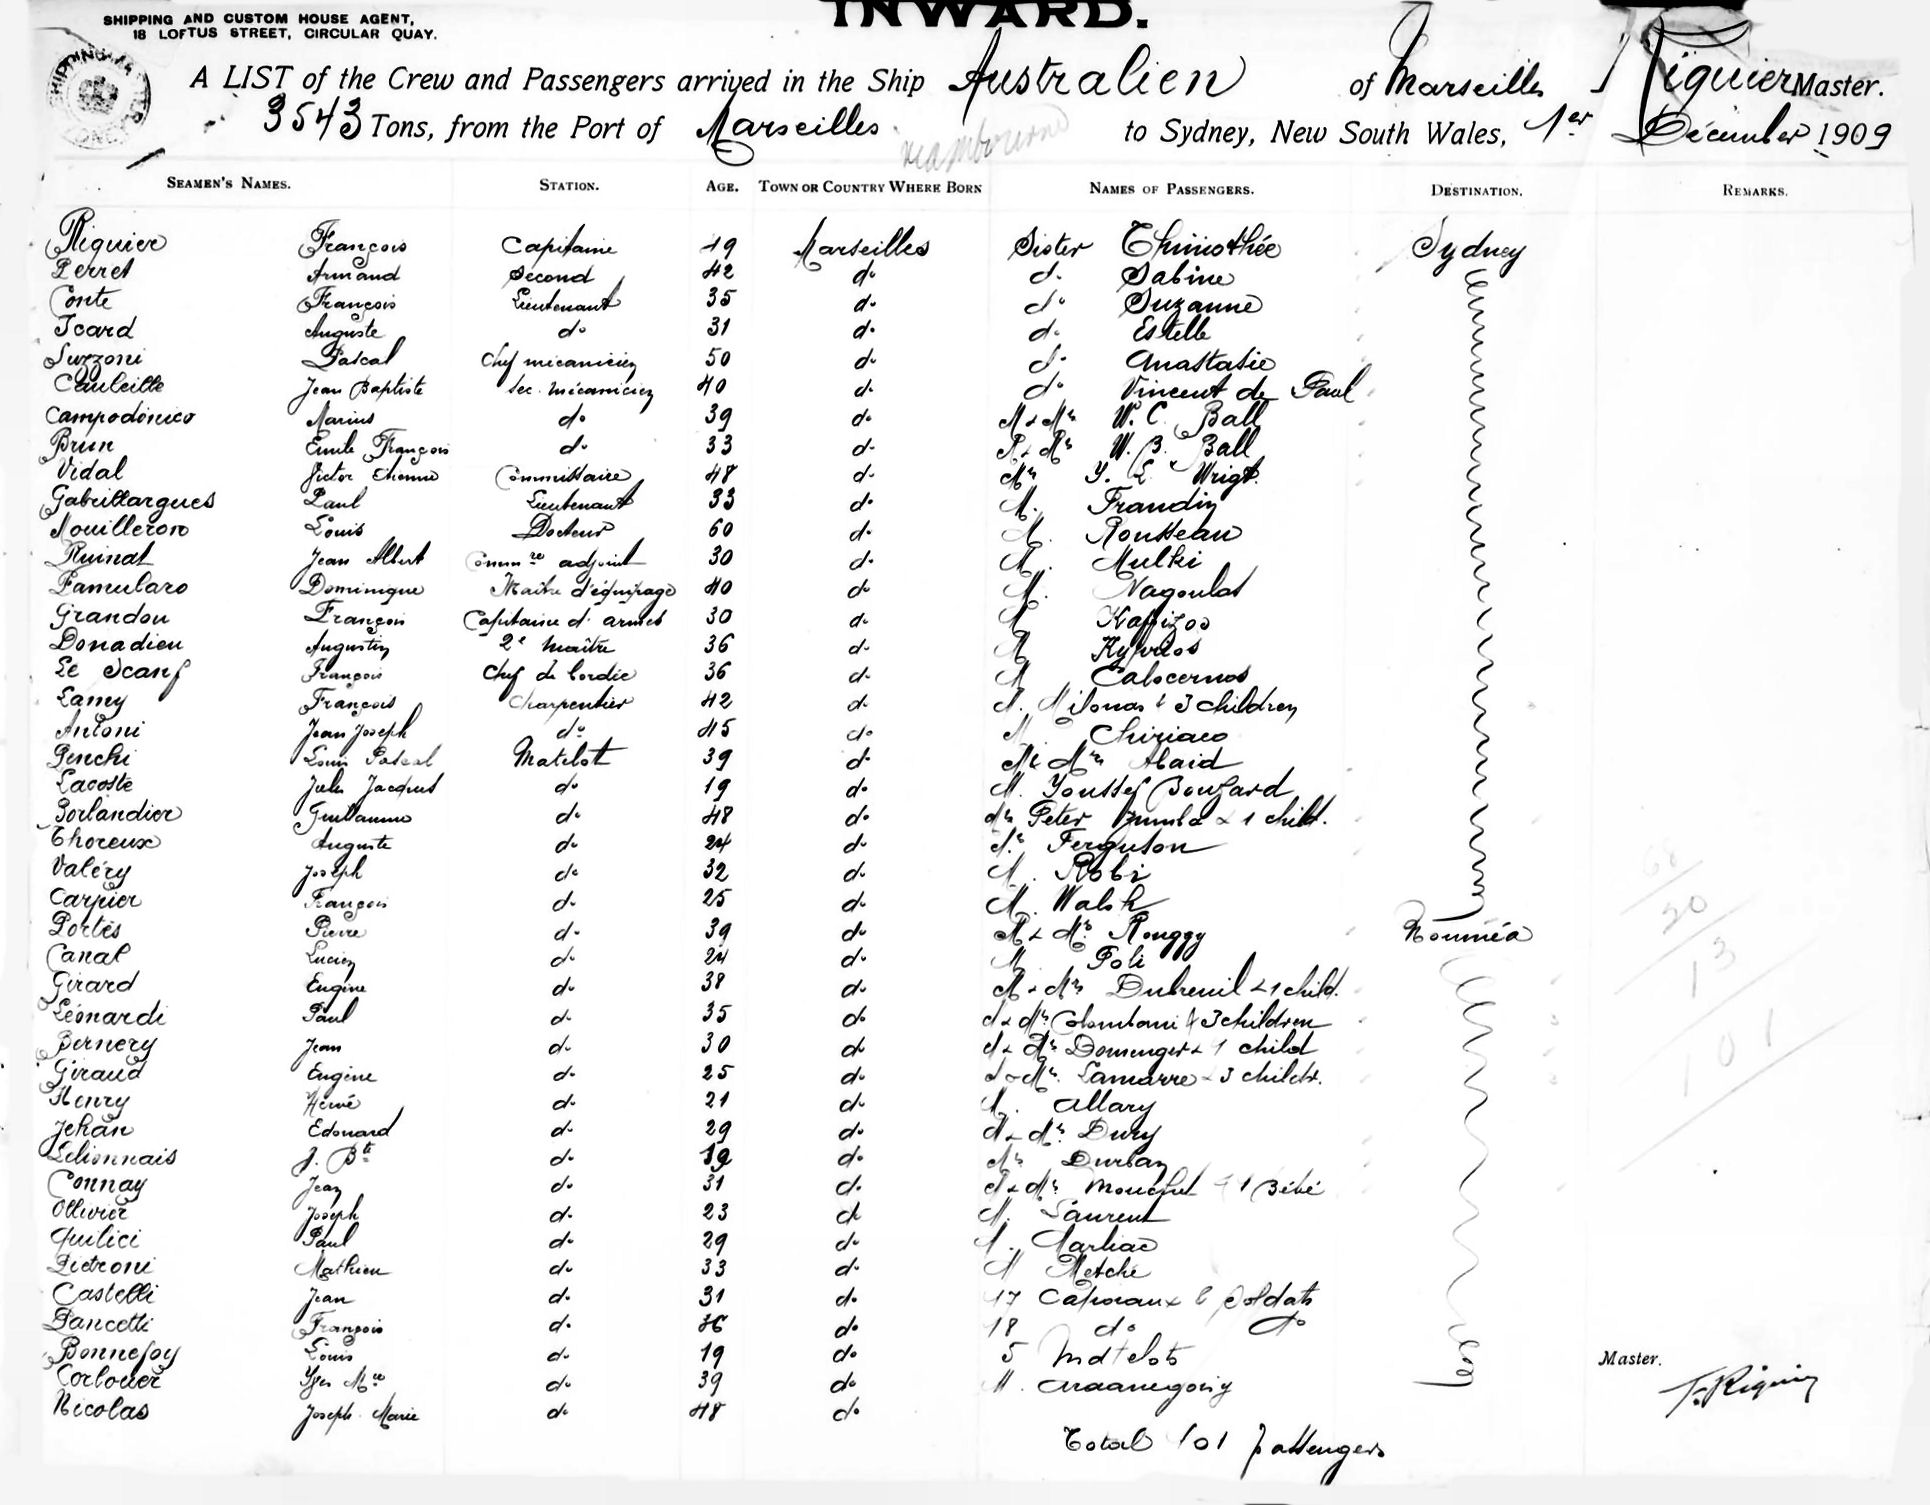 SHIPPING AND CUSTOM HOUSE AGENT,
18 LOFTUS STREET, CIRCULAR QUAY.
INWARD.
A LIST of the Crew and Passengers arrived in the Ship Australien of Marseilles Riquier Master.
3543 Tons, from the Port of Marseilles to Sydney, New South Wales, 1er Décember 1909
SEAMEN'S NAMES. STATION. AGE. TOWN OR COUNTRY WHERE BORN NAMES OF PASSENGERS. DESTINATION. REMARKS.
Riquier François Capitaine 49 Marseilles Sister Thimothée Sydney
Perret Armand Second 42 do Sabine
Conte François Lieutenant 35 do do Suzanne
Icard Auguste do 31 do do Estelle
Suzzoni Pascal Chef mécanicien 50 do do Anastasie
Cauleille Jean Baptiste Sec. mécanicien 40 do do Vincent de Paul
Campodonico Marius do 39 do M & Mrs W. C. Ball
Brun Emile François do 33 do M & Mrs W. B. Ball
Vidal Victor Etienne Commissaire 48 do Mrs Y. L. Wrigt.
Gabrillargues Paul Lieutenant 33 do M. Frandin
Nouilleron Louis Docteur 60 do M. Rousseau
Ruinat Jean Albert Commre adjoint 30 do M. Mulki
Famularo Dominique Maître d'équipage 40 do M. Nagoulat
Grandou François Capitaine d'armes 30 do M
Donadieu Augustin 2e maître 36 do M
Le Scanf François Chef de bordée 36 do M Calocernos
Lamy François Charpentier 42 do M. Milonas & 3 children
Antoni Jean Joseph do 45 do M Chiriaco
Penchi Louis Pascal Matelot 39 do M & Mrs Abaid
Lacoste Jules Jacques do 19 do M. Youssef Bouzard
Borlandier Guillaume do 48 do Mrs Peter & 1 child.
Thoreux Auguste do 24 do Ferguson
Valéry Joseph do 32 do M. Robi
Carpier François do 25 do M. Walsh
Portes Pierre do 39 do M & Mrs Rouggy Nouméa
Canal Lucien do 24 do M Poli
Girard Eugène do 38 do M & Mrs Dubreuil & 1 child.
Léonardi Paul do 35 do M & Mrs Colombani & 3 children
Bernery Jean do 30 do M & Mrs Domenger & 1 child
Giraud Eugène do 25 do M & Mrs Lamarre & 3 childr.
Henry Hervé do 21 do M. Allary
Jehan Edouard do 29 do M & Mrs Dury
Lelionnais J. Bte do 19 do Mrs Durban
Connay Jean do 31 do M & Mrs Mouchet & 1 Bébé
Ollivier Joseph do 23 do M. Laurent
Quilici Paul do 29 do M. Marliac
Pietroni Mathieu do 33 do M Metché
Castelli Jean do 31 do 17 Caporaux & Soldats
Pancetti François do 36 do 18 do do
Bonnefoy Louis do 19 do 5 Matelots
Corlouer Yves Mie do 39 do M.
Nicolas Joseph Marie do 48 do
Master.
F. Riquier
Total 101 passengers
20
13
101